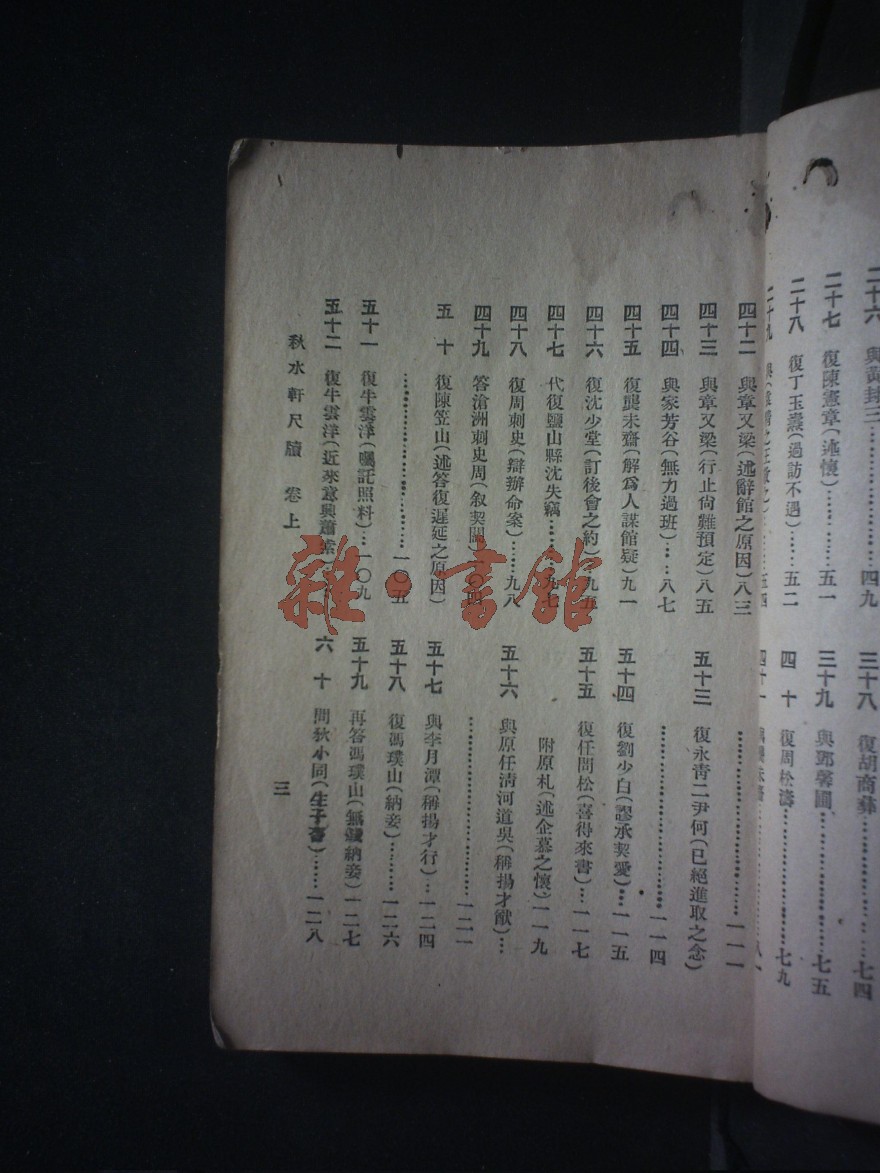 二十六 與黃封三………四九
二十七 復陳憲章(述懷)……五一
二十八 復丁玉壽(過訪不遇)……五二
二十九
三十八 復胡商彝………七四
三十九 與鄧馨圃………七五
四十 復周松濤………七九
四十一
四十二 與章又梁(述辭館之原因)八三
四十三 與章又梁(行止尙難預定)八五
四十四 與家芳谷(無力過班)…八七
四十五 復龔未齋(解爲人謀館疑)九一
四十六 復沈少堂(訂後會之約)…九五
四十七 代復鹽山縣沈失竊………九七
四十八 復周刺史(辯辦命案)……九八
四十九 答滄洲刺史周(叙契闊)一〇四
五十 復陳笠山(述答復遲延之原因)
………一〇五
五十一 復牛雲洋(囑託照料)…一〇九
五十二 復牛雲洋(近來意興蕭索
五十三 復永靑二尹何(已絕進取之念)
………一一一
五十四 復劉少白(謬承契愛)…一一五
………一一四
五十五 復任問松(喜得來書)…一一七
附原札(述企慕之懷)一一九
五十六 與原任淸河道吳(稱揚才猷)…
………一二一
五十七 與李月潭(稱揚才行)…一二四
五十八 復馮璞山(納妾)……一二六
五十九 再答馮璞山(無錢納妾)一二七
六十 問狄小同(生子否)……一二八
秋水軒尺牘 卷上
三
雜·書館